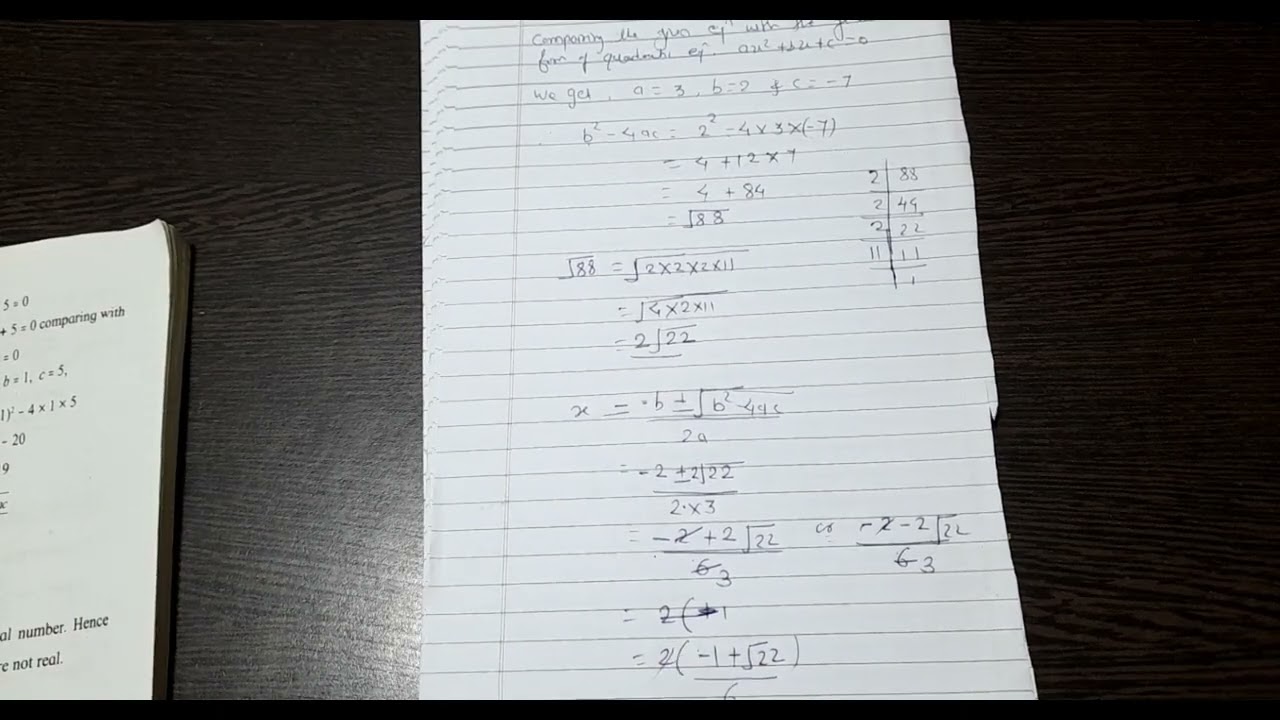 5 = 0
+ 5 = 0 comparing with
= 0
b = 1, c = 5,
1)² - 4 × 1 × 5
- 20
9
al number. Hence
re not real.
Comparing the given eqⁿ with the
form of quadratic eqⁿ. ax² + bx + c = 0
We get, a = 3, b = 2 & c = -7
∴ b² - 4ac = 2² - 4 × 3 × (-7)
= 4 + 12 × 7
= 4 + 84
= √88
2 | 88
2 | 44
2 | 22
11 | 11
1
√88 = √2×2×2×11
= √4×2×11
= 2√22
x = -b ± √b² - 4ac
2a
= -2 ± 2√22
2 × 3
= -2 + 2√22 or -2 - 2√22
6 3 6 3
= 2(+1
= 2(-1 + √22)
6